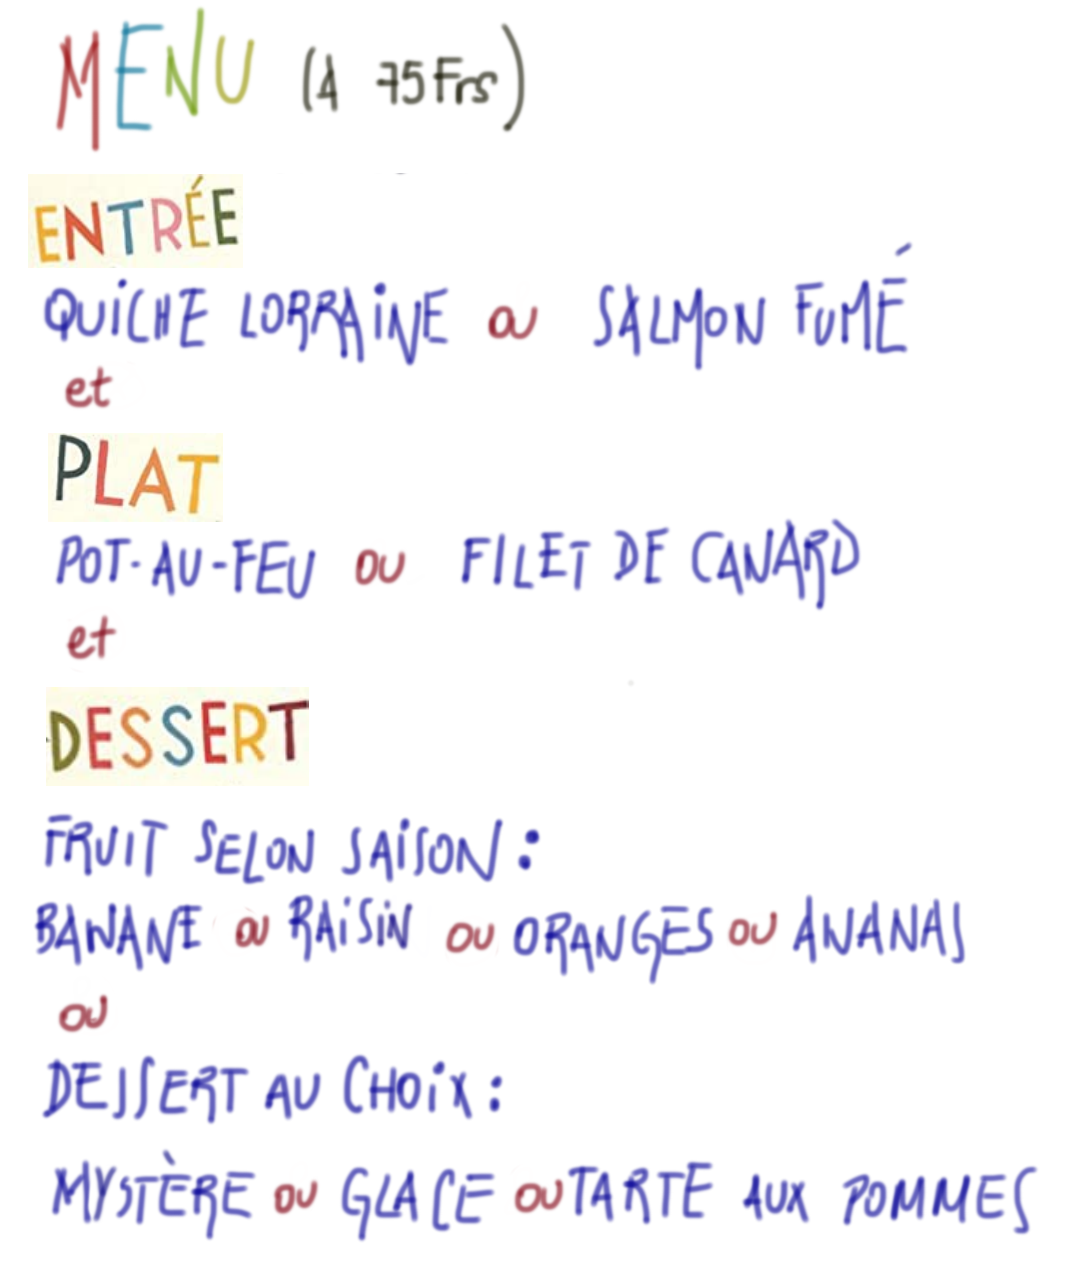 MENU (A 75 Frs)
ENTRÉE
QUiCHE LORRAiNE ou SALMON FUMÉ
et
PLAT
POT-AU-FEU OU FILET DE CANARD
et
DESSERT
FRUIT SELON SAiSON :
BANANE OU RAiSiN OU ORANGES OU ANANAS
OU
DESSERT AU CHOiX :
MYSTÈRE OU GLACE OU TARTE AUX POMMES